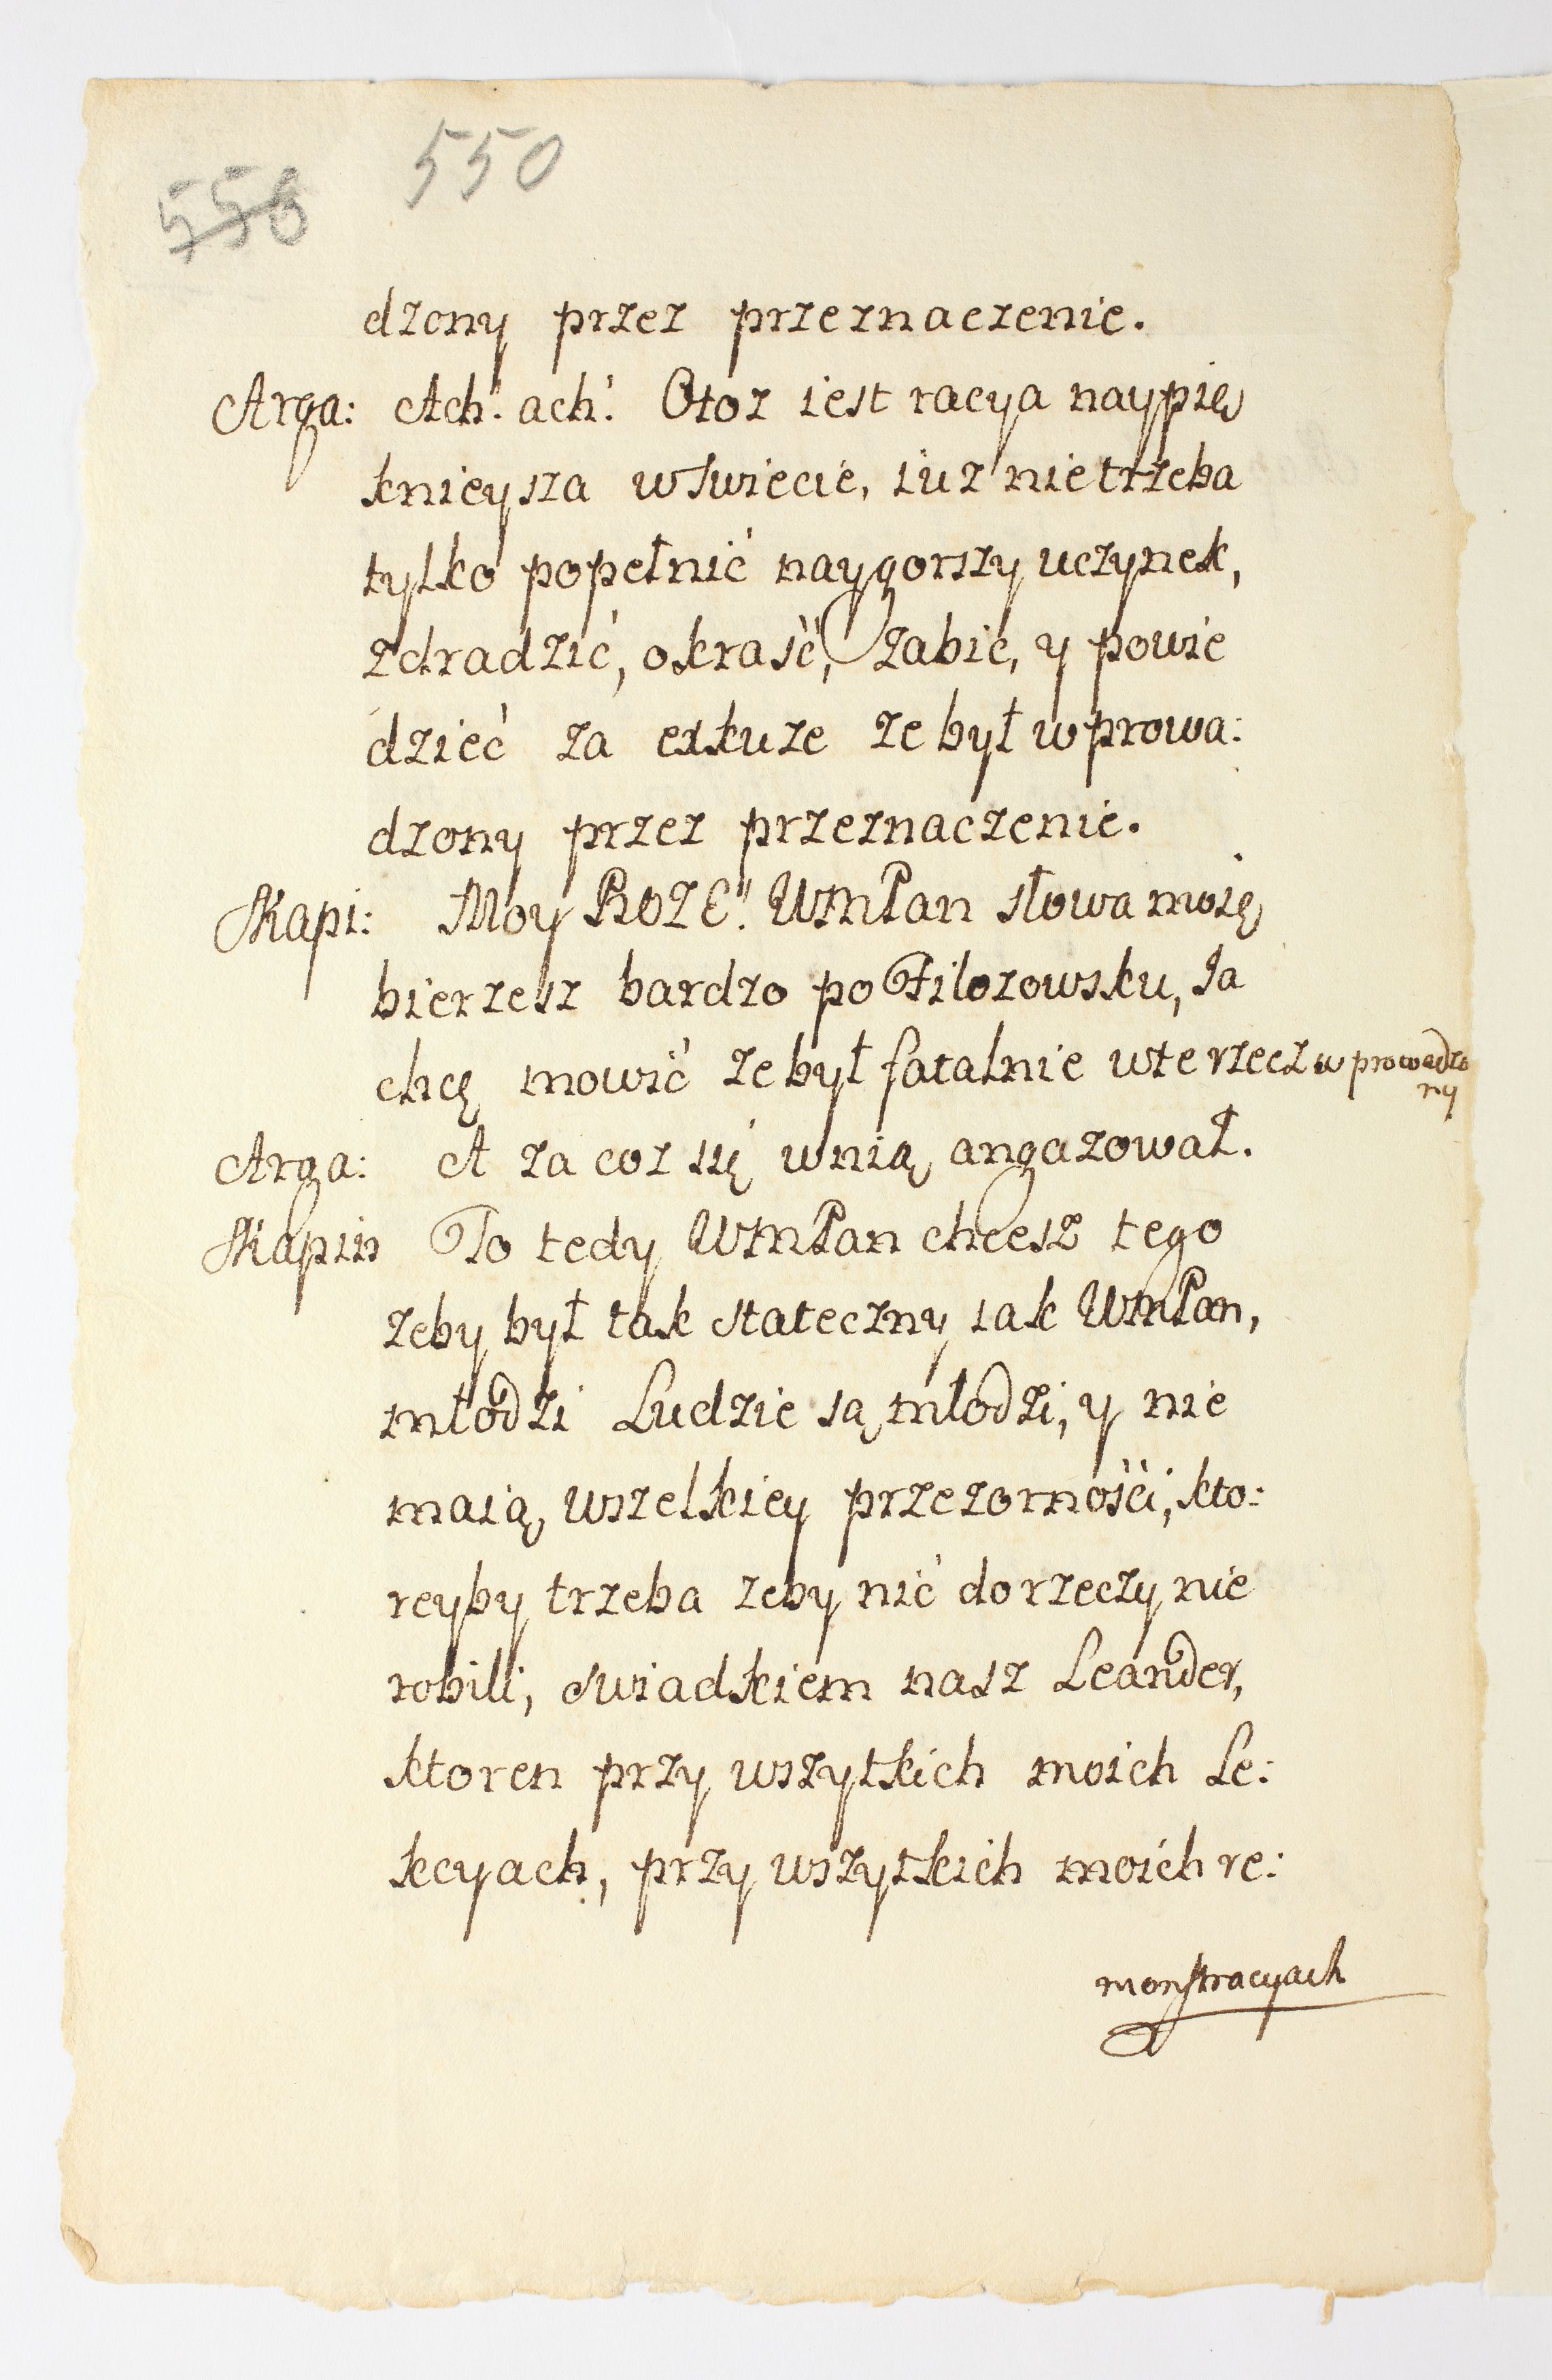 558 550
dzony przez przeznaczenie.
Arga: Ach! ach! Otoz iest racya naypię
knieysza wswiecie, iuz nietrzeba
tylko popełnić naygorszy uczynek,
zdradzić, okraść, zabic, y powie
dzieć za exkuze ze był wprowa:
dzony przez przeznaczenie.
Skapi: Moy BOZE! WMPan słowa moię
bierzesz bardzo po Filozowsku, Ja
chcę mowić ze był fatalnie wte rzecz wprowadzo
ny
Arga: A za coz się wnią angazował.
Skapin To tedy WMPan chcesz tego
zeby był tak stateczny iak WMPan,
młodzi Ludzie są młodzi, y nie
maią wszelkiey przezorności, kto:
reyby trzeba zeby nić do rzeczy nie
robili, swiadkiem nasz Leander,
ktoren przy wszytkich moich Le:
kcyach, przy wszytkich moich re:
monstracyach